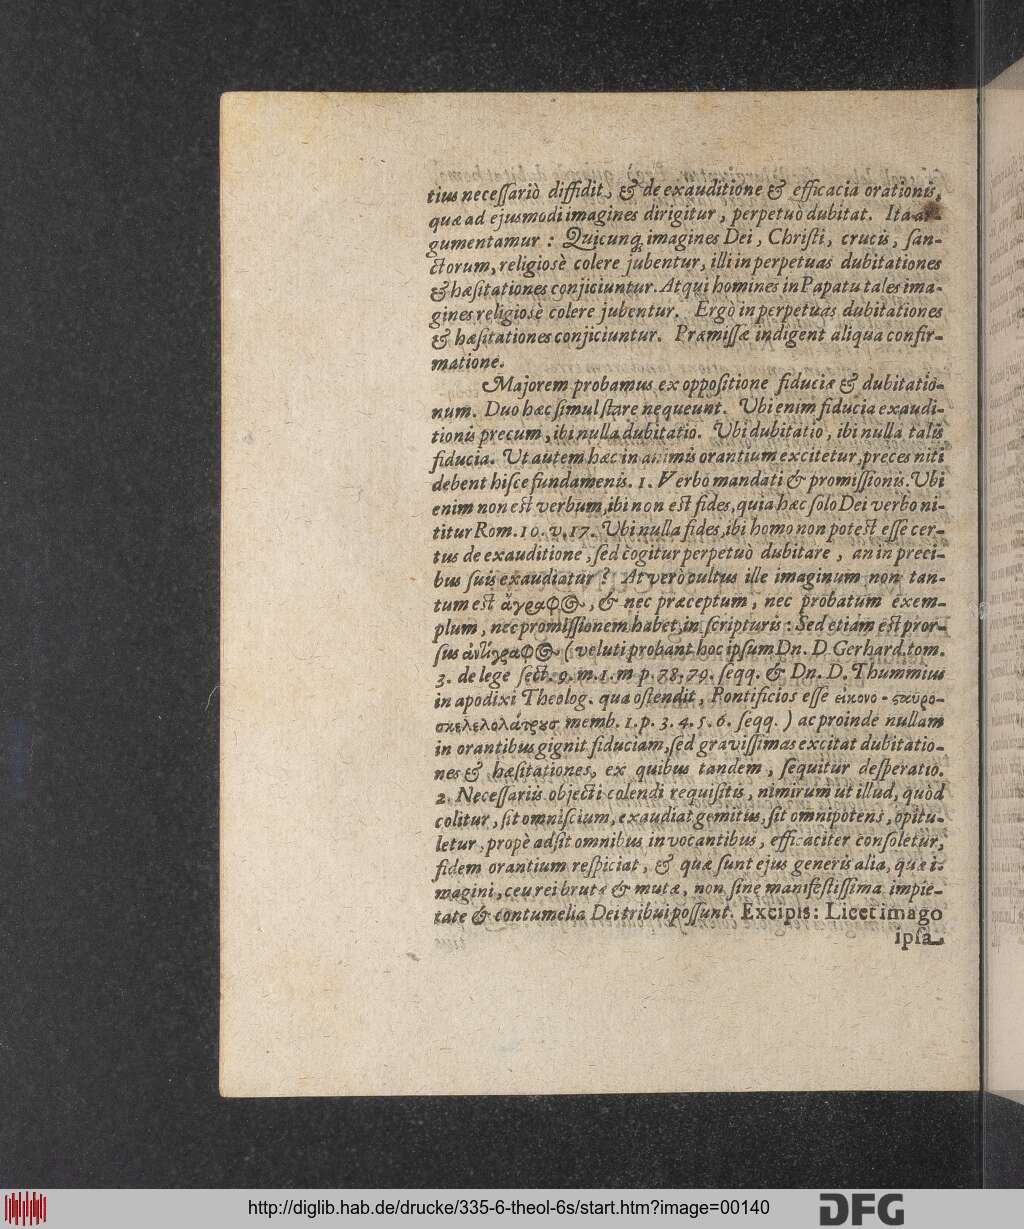 tius necessariò diffidit, & de exauditione & efficacia orationis,
quæ ad ejusmodi imagines dirigitur, perpetuò dubitat. Ita ar-
gumentamur: Quicunq; imagines Dei, Christi, crucis, san-
ctorum, religiosè colere jubentur, illi in perpetuas dubitationes
& hæsitationes conjiciuntur. Atqui homines in Papatu tales ima-
gines religiosè colere jubentur. Ergò in perpetuas dubitationes
& hæsitationes conjiciuntur. Præmissæ indigent aliqua confir-
matione.
Majorem probamus ex oppositione fiduciæ & dubitatio-
num. Duo hæc simul stare nequeunt. Ubi enim fiducia exaudi-
tionis precum, ibi nulla dubitatio. Ubi dubitatio, ibi nulla talis
fiducia. Ut autem hæc in animis orantium excitetur, preces niti
debent hisce fundamenis. 1. Verbo mandati & promissionis. Ubi
enim non est verbum, ibi non est fides, quia hæc solo Dei verbo ni-
titur Rom. 10. v. 17. Ubi nulla fides, ibi homo non potest esse cer-
tus de exauditione, sed cogitur perpetuò dubitare, an in preci-
bus suis exaudiatur? At verò cultus ille imaginum non tan-
tum est ἄγραφος, & nec præceptum, nec probatum exem-
plum, nec promissionem habet, in scripturis: Sed etiam est pror-
sus ἀντίγραφος (veluti probant hoc ipsum Dn. D. Gerhard. tom.
3. de lege sect. 9. m. 1. m p. 78, 79. seqq. & Dn. D. Thummius
in apodixi Theolog. qua ostendit, Pontificios esse εἰκονο-σαυρο-
σκελελολάτρους memb. 1. p. 3. 4. 5. 6. seqq.) ac proinde nullam
in orantibus gignit fiduciam, sed gravissimas excitat dubitatio-
nes & hæsitationes, ex quibus tandem, sequitur desperatio.
2. Necessariis objecti colendi requisitis, nimirum ut illud, quòd
colitur, sit omniscium, exaudiat gemitus, sit omnipotens, opitu-
letur, propè adsit omnibus invocantibus, efficaciter consoletur,
fidem orantium respiciat, & quæ sunt ejus generis alia, quæ i-
magini, ceu rei brutæ & mutæ, non sine manifestissima impie-
tate & contumelia Dei tribui possunt. Excipis: Licet imago
ipsa
http://diglib.hab.de/drucke/335-6-theol-6s/start.htm?image=00140
DFG